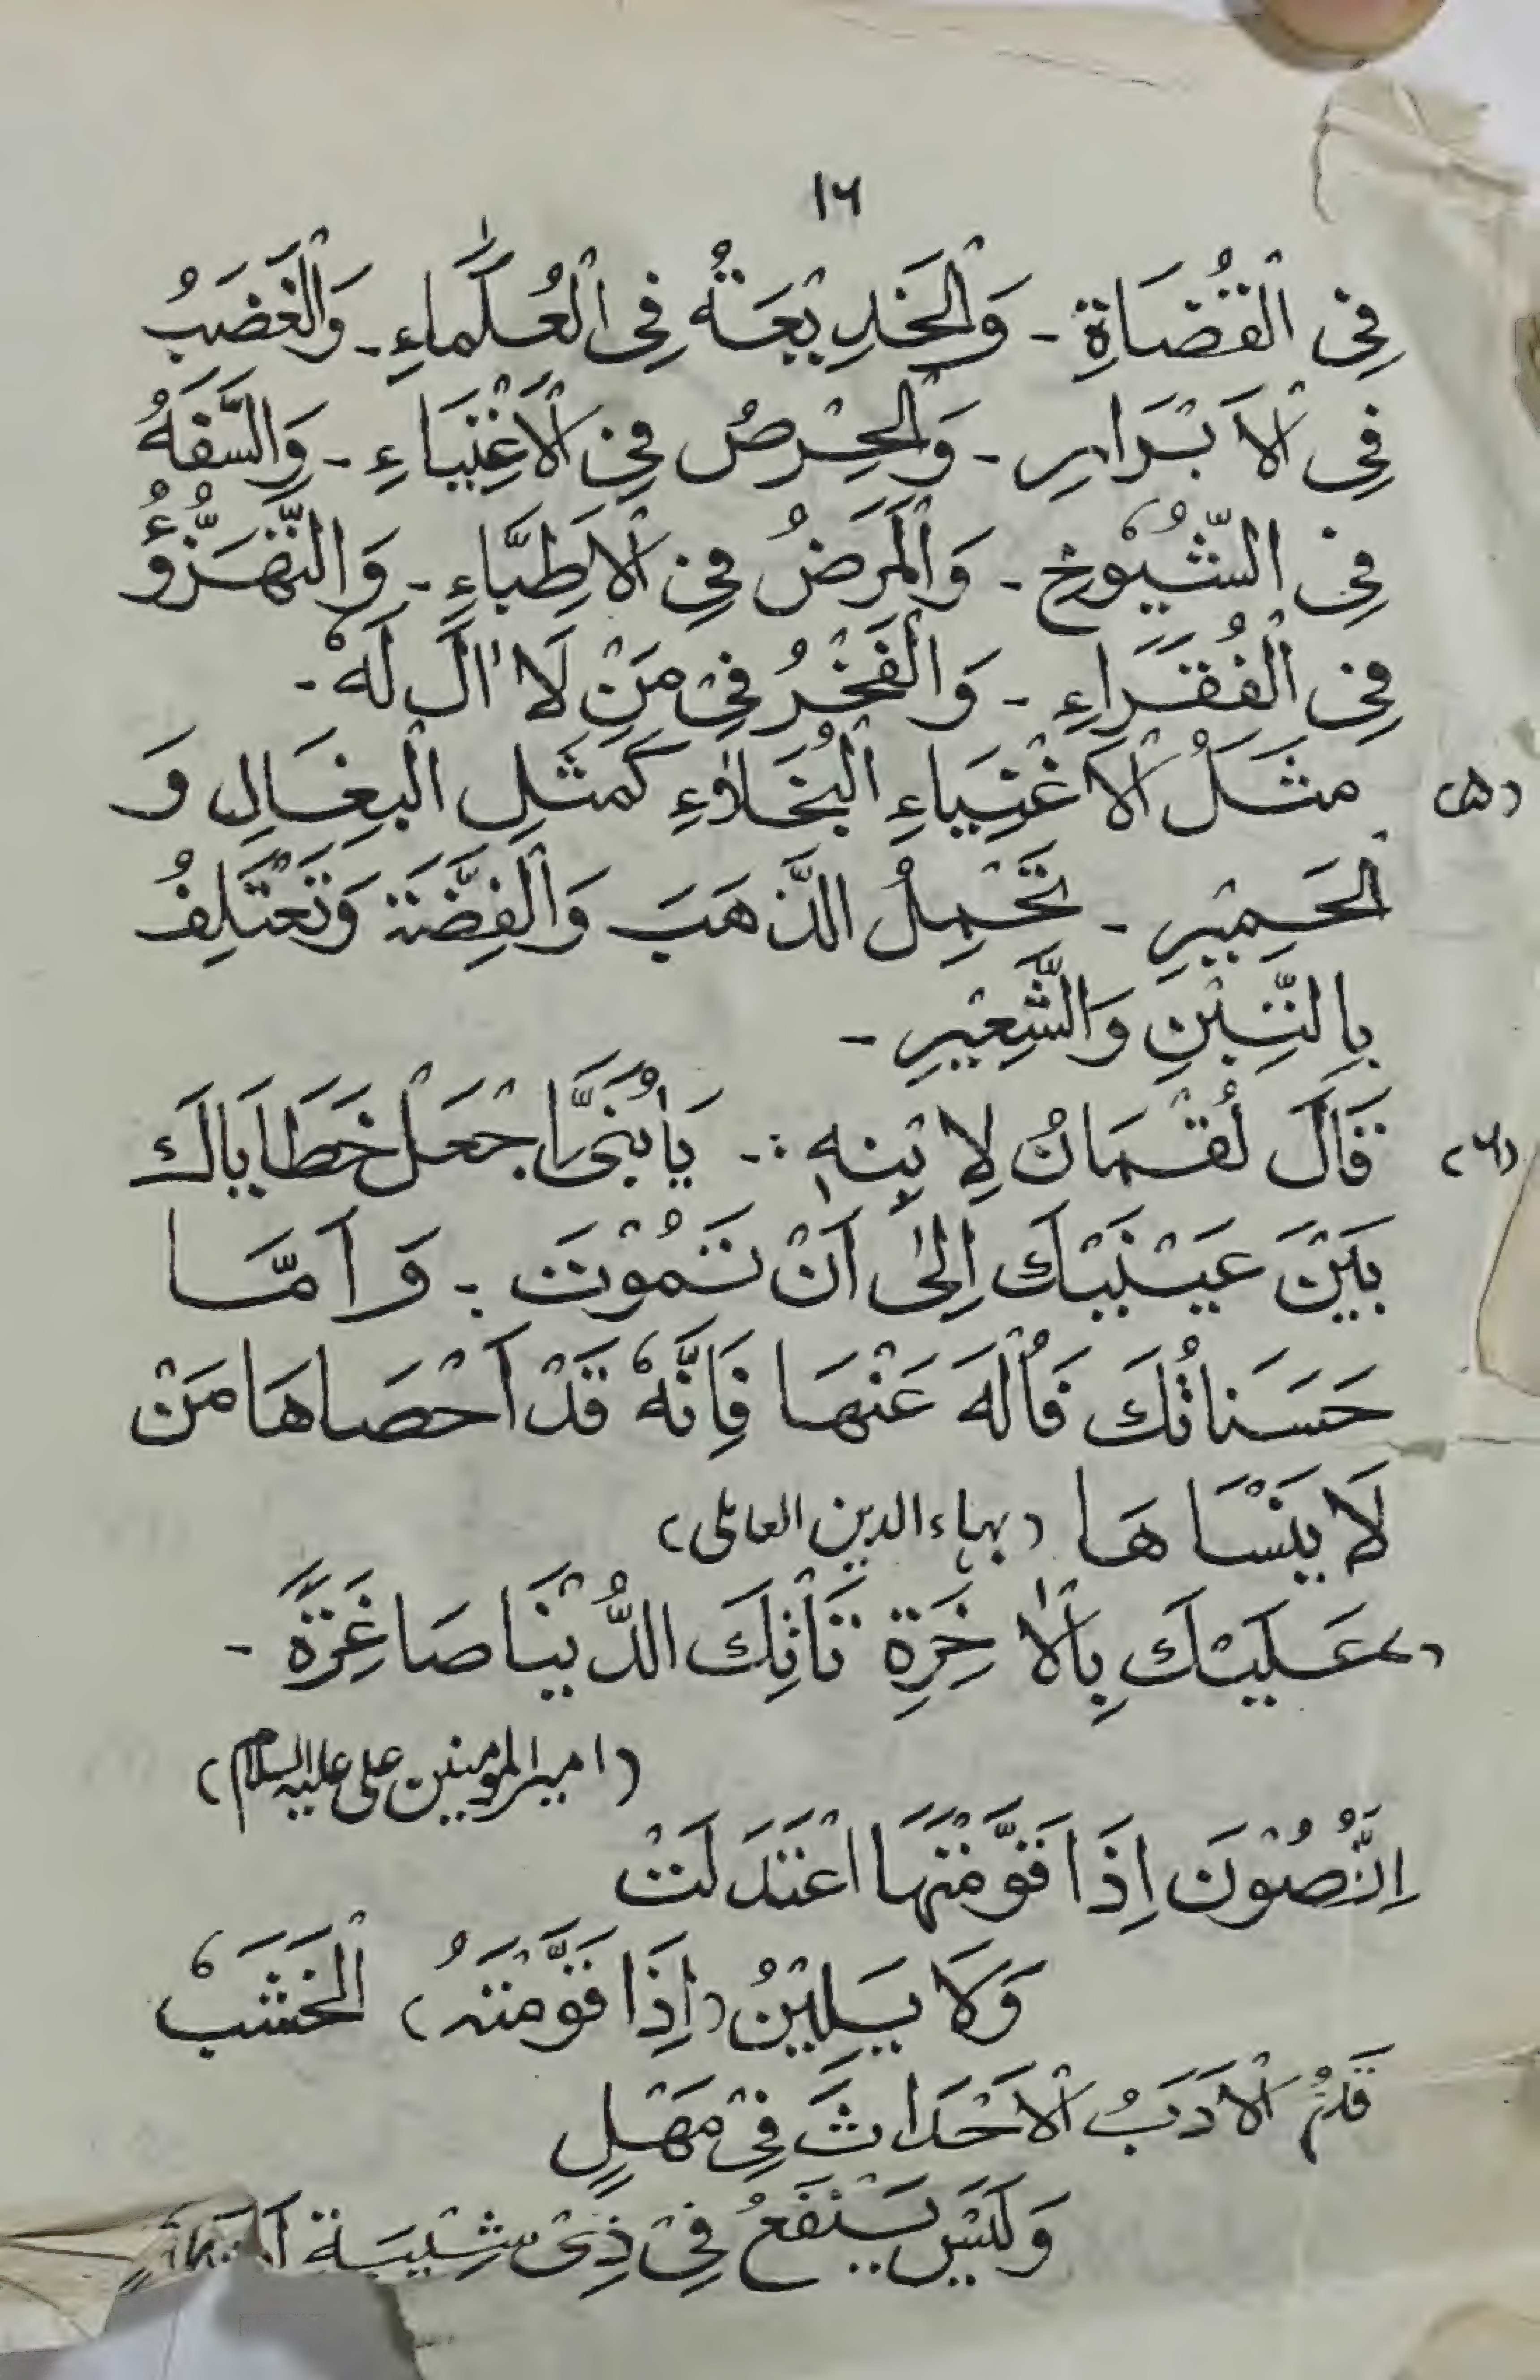 ۱۶
فِی الْقُضَاةِ - وَالْخَدِیْعَةُ فِی الْعُلَمَاءِ - وَالْغَضَبُ
فِی الْاَبْرَارِ - وَالْحِرْصُ فِی الْاَغْنِیَاءِ - وَالسَّفَهُ
فِی الشُّیُوْخِ - وَالْمَرَضُ فِی الْاَطِبَّاءِ - وَالتَّهَزُّؤُ
فِی الْفُقَرَاءِ - وَالْفَخْرُ فِیْ مَنْ لَا اٰلَ لَهٗ -
(۵) مَثَلُ الْاَغْنِیَاءِ الْبُخَلَاءِ کَمَثَلِ الْبِغَالِ وَ
الْحَمِیْرِ - تَحْمِلُ الذَّهَبَ وَالْفِضَّةَ وَتَعْتَلِفُ
بِالتِّبْنِ وَالشَّعِیْرِ -
(۶) قَالَ لُقْمَانُ لِابْنِهٖ :- یَابُنَیَّ اجْعَلْ خَطَایَاكَ
بَیْنَ عَیْنَیْكَ اِلٰی اَنْ تَمُوْتَ - وَاَمَّا
حَسَنَاتُكَ فَالْهَ عَنْهَا فَاِنَّهٗ قَدْ اَحْصَاهَا مَنْ
لَا یَنْسَاهَا (بهاء الدین العاملی)
(۷) عَلَیْكَ بِالْاٰخِرَةِ تَأْتِكَ الدُّنْیَا صَاغِرَةً -
(امیر المومنین علی علیہ السلام)
اِنَّ الْغُصُوْنَ اِذَا قَوَّمْتَهَا اعْتَدَلَتْ
وَلَا یَلِیْنُ (اِذَا قَوَّمْتَهُ) الْخَشَبُ
الْاَدَبُ الْاَحْدَاثَ فِیْ مَهَلٍ
وَلَیْسَ یَنْفَعُ فِیْ ذِیْ شَیْبَةٍ